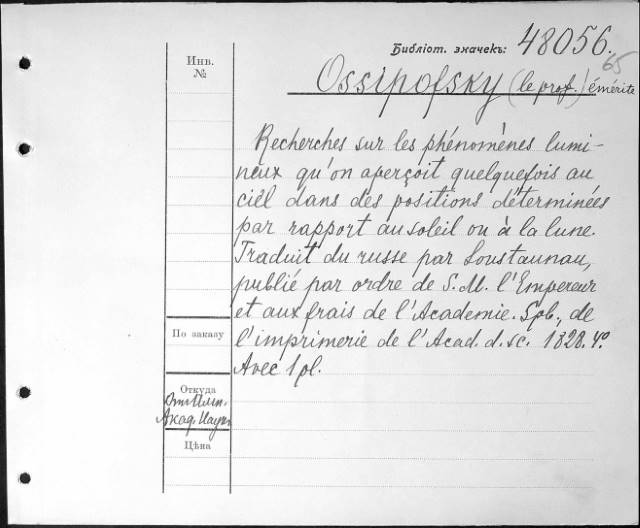 Библіот. значекъ: 48056.
65
Ossipofsky (le prof.) émérite
Инв.
№
Recherches sur les phénomènes lumi-
neux qu'on aperçoit quelquefois au
ciel dans des positions déterminées
par rapport au soleil ou à la lune.
Traduit du russe par Loustaunau,
publié par ordre de S. M. l'Empereur
et aux frais de l'Academie. Spb., de
l'imprimerie de l'Acad. d. sc. 1828. 4º
Avec 1 pl.
По заказу
Откуда
Акад. Наукъ
Цѣна